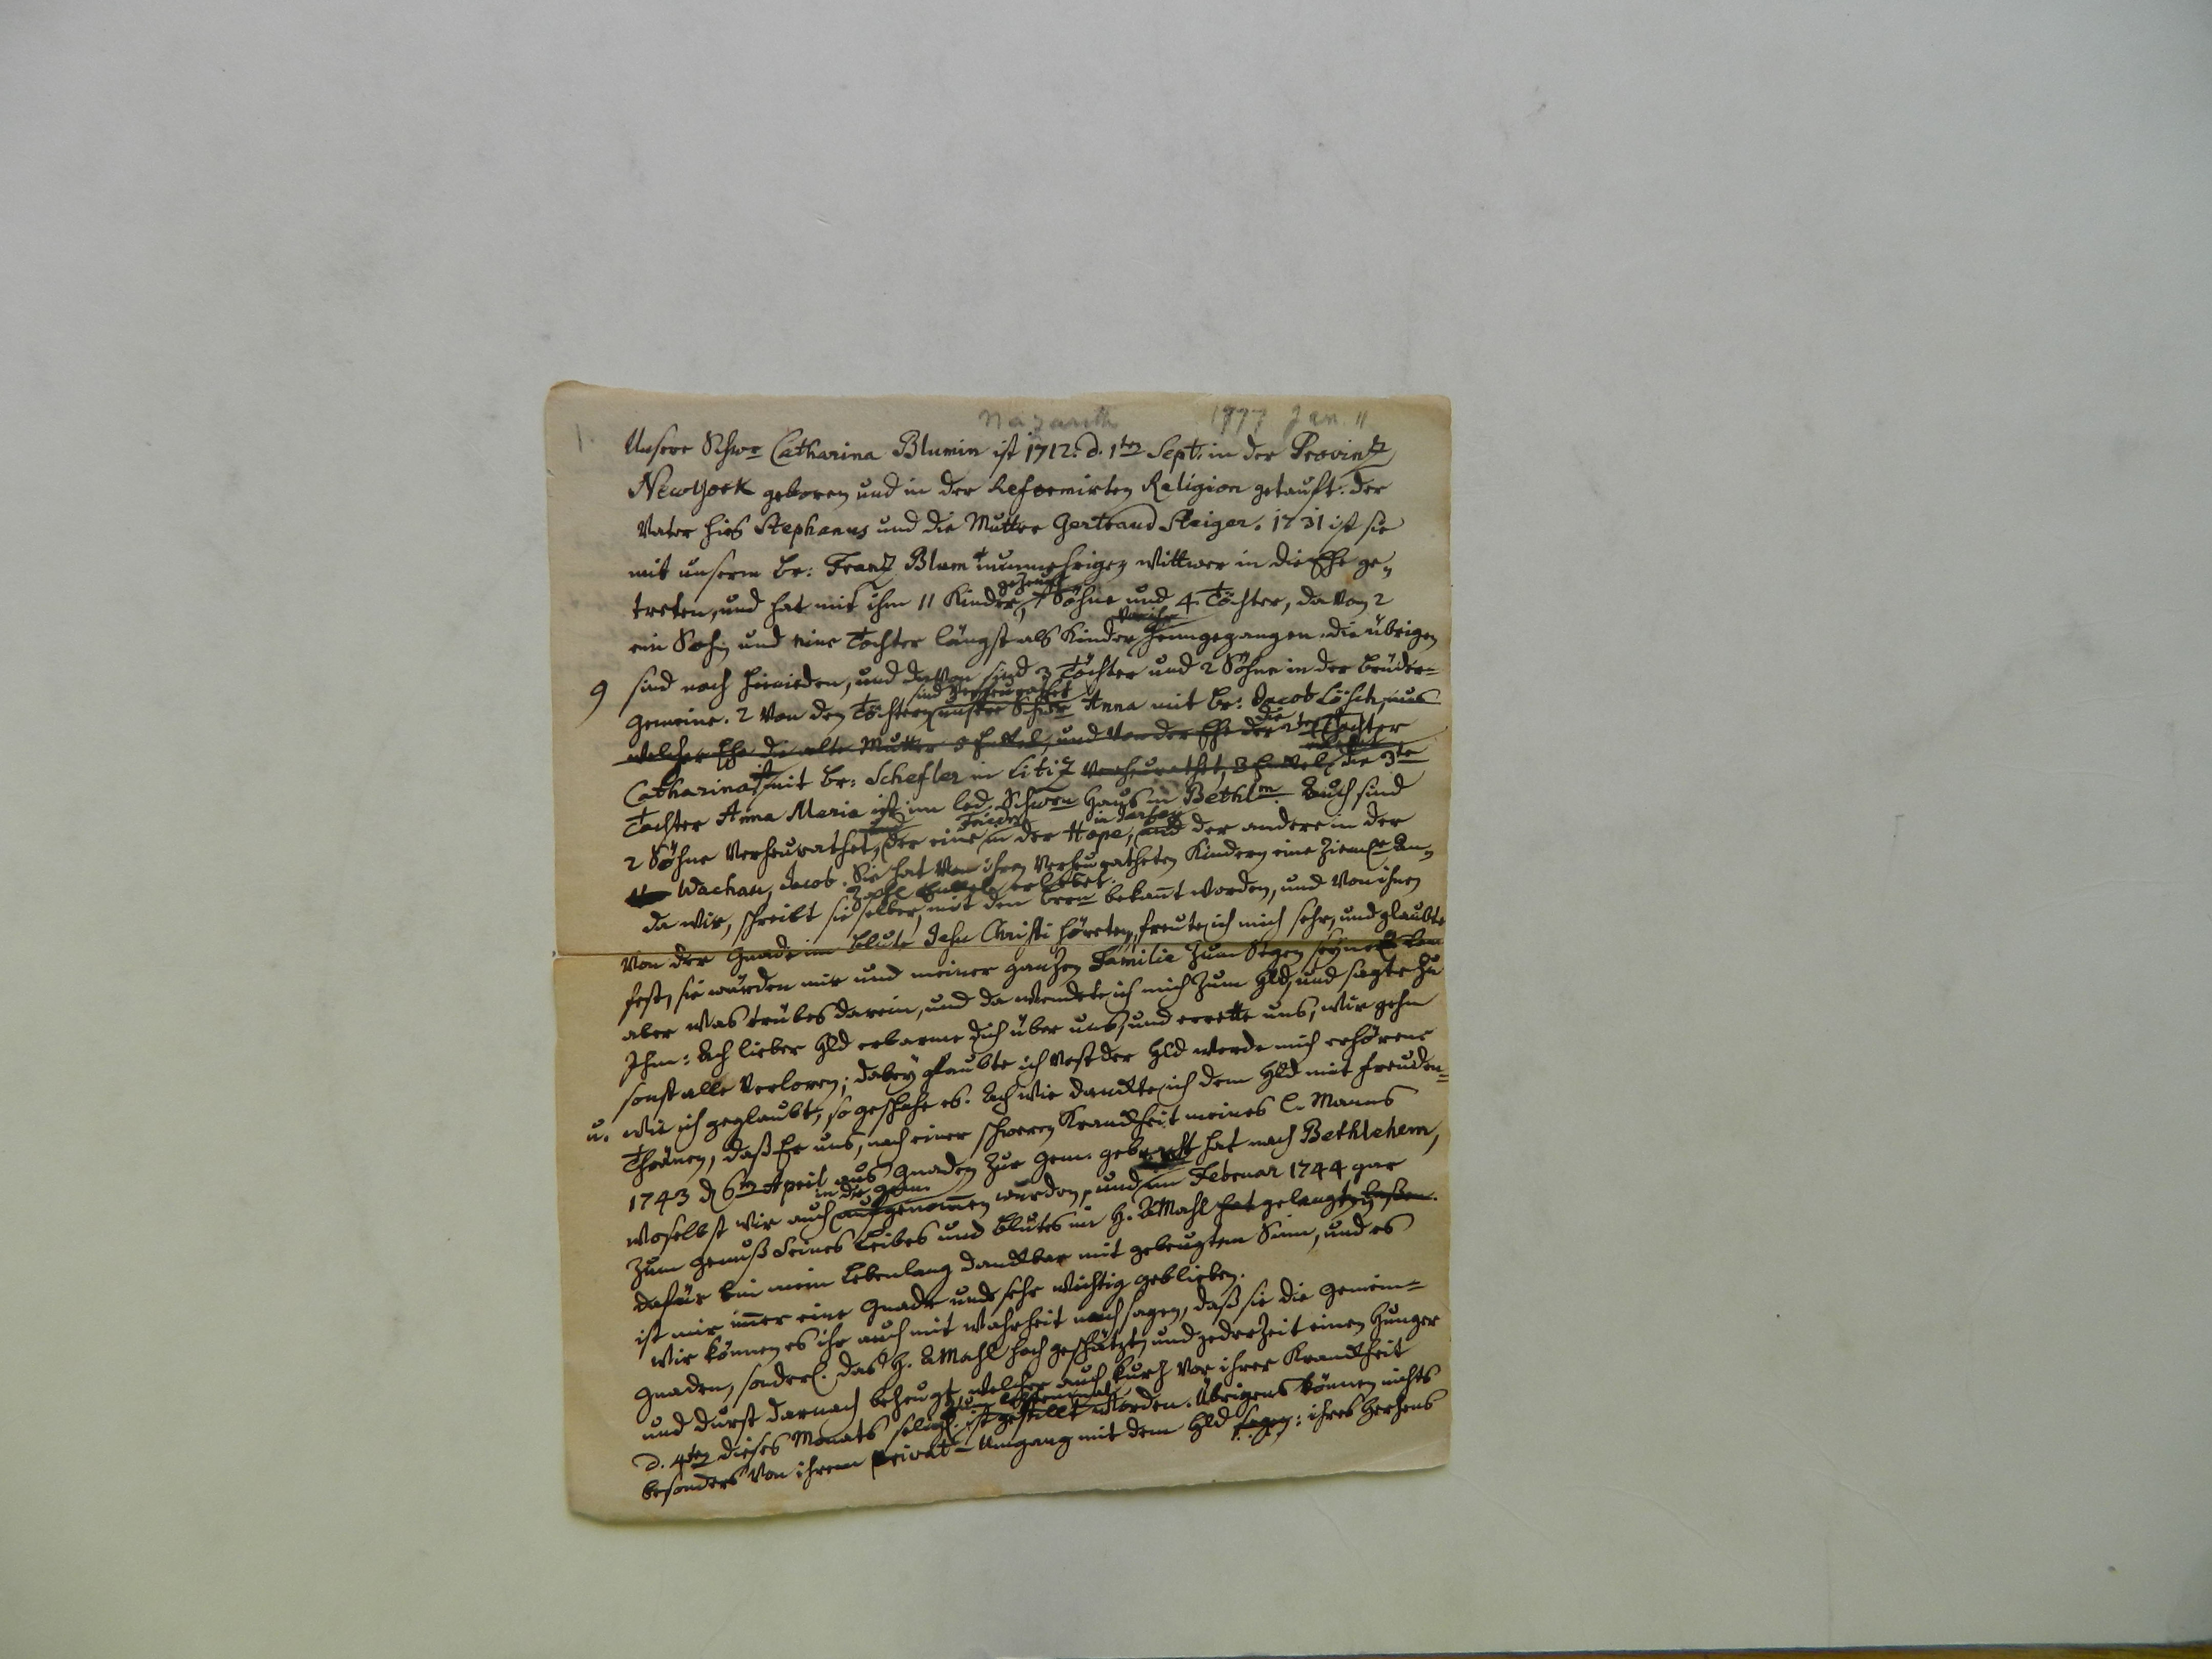 Nazareth 1777 Jan. 11
Unsere Schwr Catharina Blumin ist 1712. d. 1ten Sept. in der Provintz
Newyork geboren und in der Reformirten Religion getauft. der
Vater hies Stephanus und die Mutter Gertraud Steiger. 1731 ist sie
mit unserm Br: Frantz Blum nunmehrigen Wittwer in die Ehe ge-
gezeugt
treten, und hat mit ihm 11 Kinder, 7 Söhne und 4 Töchter, davon 2
vor ihr
ein Sohn und eine Tochter längst als Kinder heimgegangen. die übrigen
9 sind noch hienieden, und davon sind 3 Töchter und 2 Söhne in der Brüder-
sind verheurathet
gemeine. 2 von den Töchtern unsere Schwr Anna mit Br: Jacob Lösch, aus
die
welcher Ehe die alte Mutter 8 Enkel, und von der Ehe der 2ten Tochter
erlebet
Catharina ist mit Br: Schefler in Litiz verheurathet, 3 Enkel, die 3te
Tochter Anna Maria ist im led. Schwrn Haus in Bethlm. Auch sind
in
2 Söhne verheurathet, der eine in der Hope, und der andere in der
Wachau, Jacob. Sie hat von ihren verheuratheten Kindern eine Ziemle An-
Zahl Enkel erlebet.
da wir, schreibt sie selber, mit den Brrn bekant worden, und von ihnen
von der Gnade im Blute Jesu Christi hörten, freute ich mich sehr, und glaubte
fest, sie würden mir und meiner ganzen Familie zum Segen seyn. Es kam
aber was trübes darein, und da wendete ich mich zum Hld, und sagte zu
Ihm: Ach lieber Hld erbarme dich über uns, und errette uns, wir gehn
sonst alle verloren; dabey glaubte ich vest der Hld werde mich erhören
u. wie ich geglaubt, so geschahe es. Ach wie dankte ich dem Hld mit freuden-
Thränen, daß Er uns, nach einer schweren Krankheit meines l. Manns
1743 d 6ten April aus Gnaden zur Gem. gebracht hat nach Bethlehem,
in die Gem.
woselbst wir auch aufgenommen wurden, und im Februar 1744 gar
zum Genuß Seines Leibes und Blutes im H. AMahl hat gelangen laßen.
dafür bin mein Lebenlang dankbar mit gebeugtem Sinn, und es
ist mir immer eine Gnade und sehr wichtig geblieben.
Wir können es ihr auch mit Wahrheit nach sagen, daß sie die Gemein-
Gnaden, sonderl. das H. AMahl hoch geschätzt, und jederzeit einen Hunger
und Durst darnach bezeugt, welcher auch kurz vor ihrer Krankheit
zum letztenmal
d. 4ten dieses Monats selig ist gestillt worden. Übrigens können nichts
besonders von ihrem privat-Umgang mit dem Hld sagen: ihres Herzens